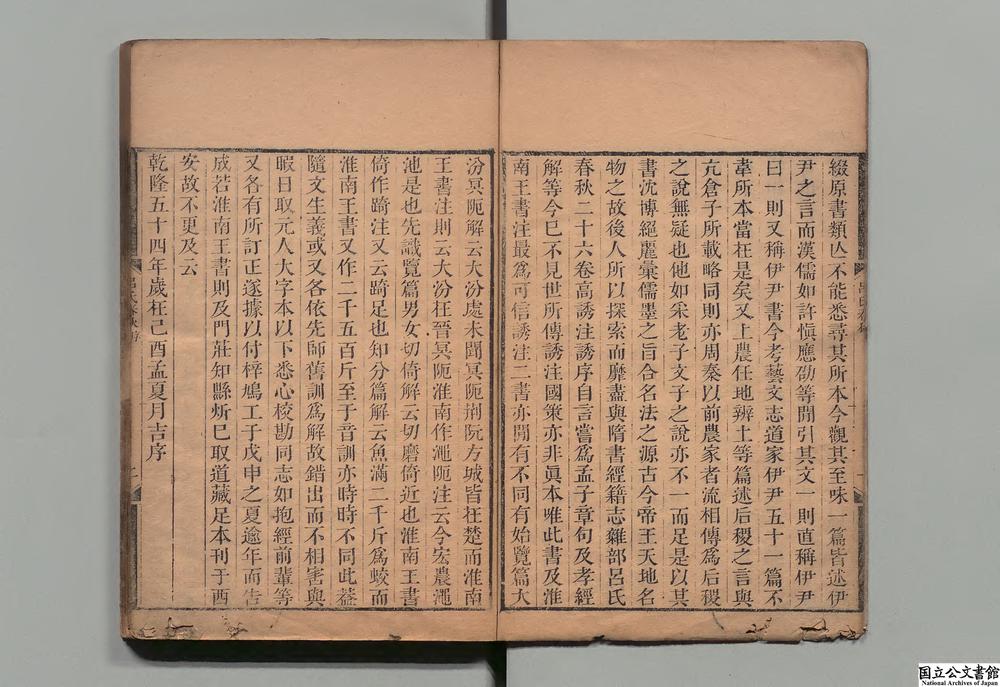 綴原書類亾不能悉尋其所本今觀其至味一篇皆述伊
尹之言而漢儒如許愼應劭等閒引其文一則直稱伊尹
曰一則又稱伊尹書今考藝文志道家伊尹五十一篇不
韋所本當在是矣又上農任地辨土等篇述后稷之言與
亢倉子所載略同則亦周秦以前農家者流相傳爲后稷
之說無疑也他如采老子文子之說亦不一而足是以其
書沈博絕麗彙儒墨之旨合名法之源古今帝王天地名
物之故後人所以探索而靡盡與隋書經籍志雜部呂氏
春秋二十六卷高誘注誘序自言嘗爲孟子章句及孝經
解等今已不見世所傳誘注國策亦非眞本唯此書及淮
南王書注最爲可信誘注二書亦閒有不同有始覽篇大
汾冥阨解云大汾處未聞冥阨荆阮方城皆在楚而淮南
王書注則云大汾在晉冥阨淮南作澠阨注云今宏農澠
池是也先識覽篇男女切倚解云切磨倚近也淮南王書
倚作踦注又云踦足也知分篇解云魚滿二千斤爲蛟而
淮南王書又作二千五百斤至于音訓亦時時不同此蓋
隨文生義或又各依先師舊訓爲解故錯出而不相害與
暇日取元人大字本以下悉心校勘同志如抱經前輩等
又各有所訂正遂據以付梓鳩工于戊申之夏逾年而告
成若淮南王書則及門莊知縣炘已取道藏足本刊于西
安故不更及云
乾隆五十四年歲在己酉孟夏月吉序
呂氏春秋序
二
国立公文書館
National Archives of Japan